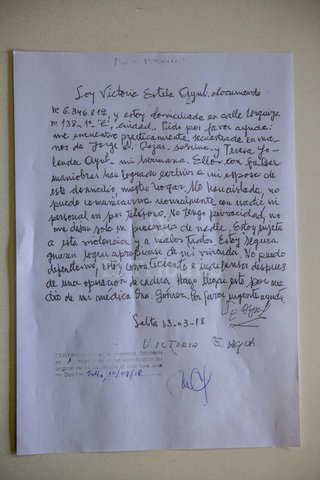 Soy Victoria Estela Agul. documento
nº 6.346.819, y estoy domiciliada en calle Urquiza
nº 138-1º "C", ciudad. Pido por favor ayuda:
me encuentro practicamente, secuestrada en ma-
nos de Jorge Rojas, sobrino y Teresa Yo-
lenda Agul- mi hermana. Ellos con falsas
maniobras han logrado excluir a mi esposo de
este domicilio, nuestro hogar. Me han aislado, no
puedo comunicarme normalmente con nadie ni
personal ni por teléfono. No tengo privacidad, no
me dejan solo en presencia de nadie. Estoy sujeta
a esta violencia y a malos tratos. Estoy segura
quieren lograr apropiarse de mi vivienda. No puedo
defenderme, estoy convaleciente e indefensa despues
de una operación de cadera. Hago llegar esto por me-
dio de mi medica Dra. Por favor urgente ayuda.
Salta 13-03-18
VICTORIA E. AGUL
CERTIFICO: Que la presente fotocopia
en 1
Doy Fe. Salta, 10/08/18